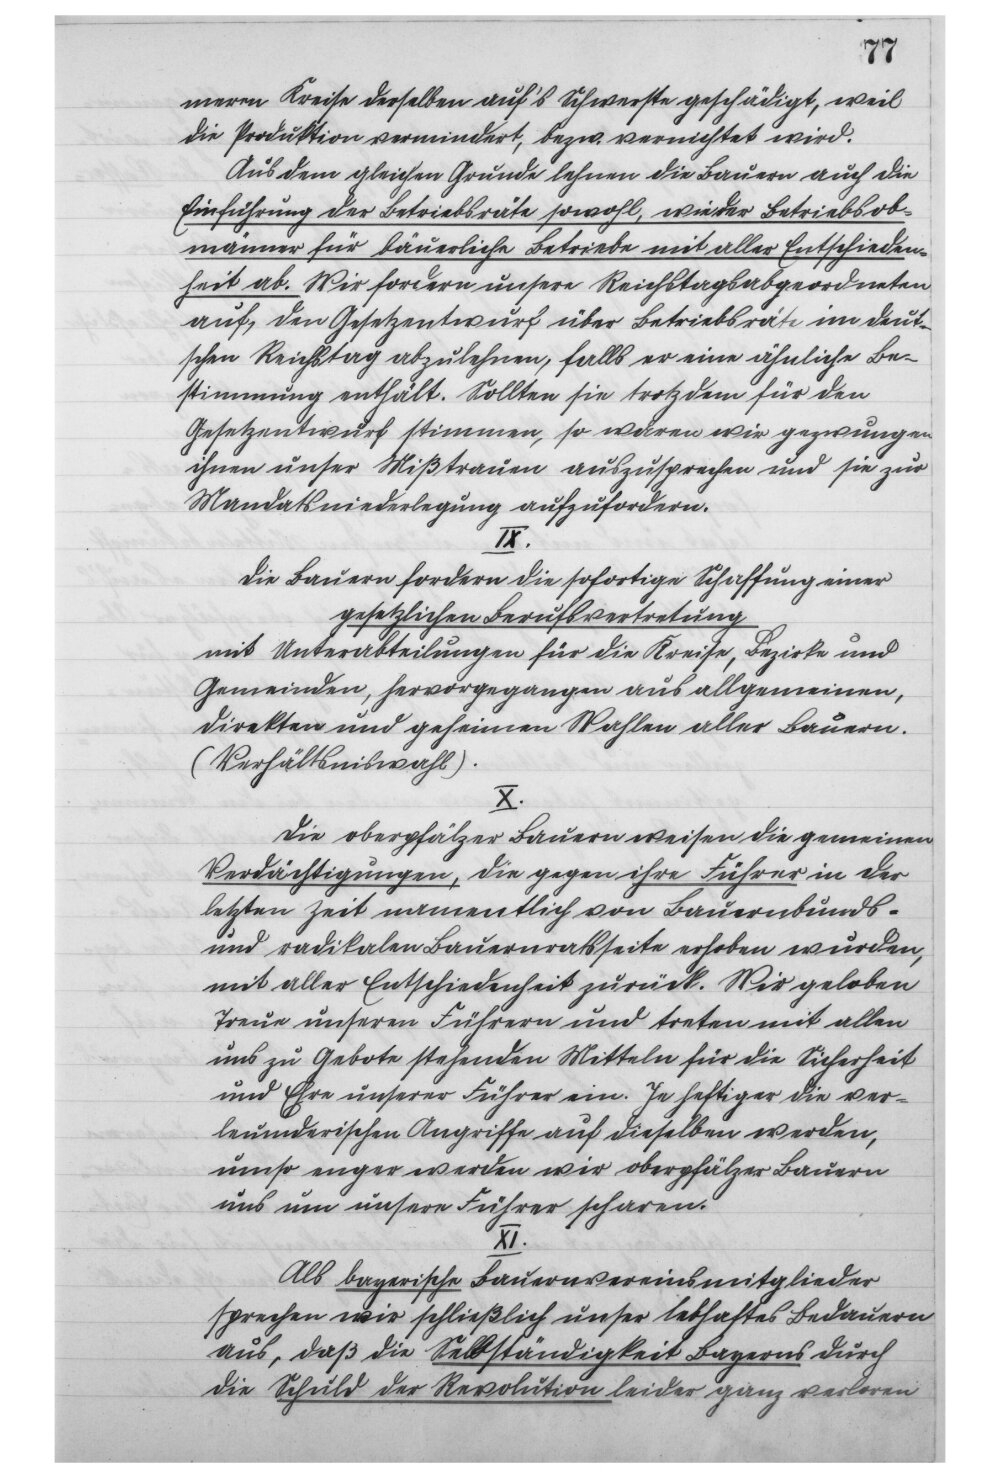 77
meren Kreise derselben auf's Schwerste geschädigt, weil
die Produktion vermindert, bezw. vernichtet wird.
Aus dem gleichen Grunde lehnen die Bauern auch die
Einführung der Betriebsräte sowohl, wie der Betriebsob-
männer für bäuerliche Betriebe mit aller Entschieden-
heit ab. Wir fordern unsere Reichstagsabgeordneten
auf, den Gesetzentwurf über Betriebsräte im deut-
schen Reichstag abzulehnen, falls er eine ähnliche Be-
stimmung enthält. Sollten sie trotzdem für den
Gesetzentwurf stimmen, so wären wir gezwungen
ihnen unser Mißtrauen auszusprechen und sie zur
Mandatsniederlegung aufzufordern.
IX.
Die Bauern fordern die sofortige Schaffung einer
gesetzlichen Berufsvertretung
mit Unterabteilungen für die Kreise, Bezirke und
Gemeinden, hervorgegangen aus allgemeinen,
direkten und geheimen Wahlen aller Bauern.
(Verhältniswahl).
X.
Die oberpfälzer Bauern weisen die gemeinen
Verdächtigungen, die gegen ihre Führer in der
letzten Zeit namentlich von Bauernbunds-
und radikalen Bauernratsseite erhoben wurden,
mit aller Entschiedenheit zurück. Wir geloben
Treue unseren Führern und treten mit allen
uns zu Gebote stehenden Mitteln für die Sicherheit
und Ehre unserer Führer ein. Je heftiger die ver-
leumderischen Angriffe auf dieselben werden,
umso enger werden wir oberpfälzer Bauern
uns um unsere Führer scharen.
XI.
Als bayerische Bauernvereinsmitglieder
sprechen wir schließlich unser lebhaftes Bedauern
aus, daß die Selbständigkeit Bayerns durch
die Schuld der Revolution leider ganz verloren